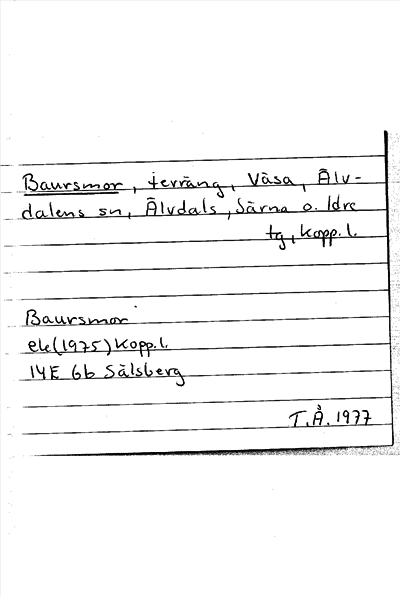 Baursmor, terräng, Väsa, Älv-
dalens sn, Älvdals, Särna o. Idre
tg, Kopp. l.
Baursmor
ek(1975) Kopp. l.
14E 6b Sälsberg
T. Å. 1977